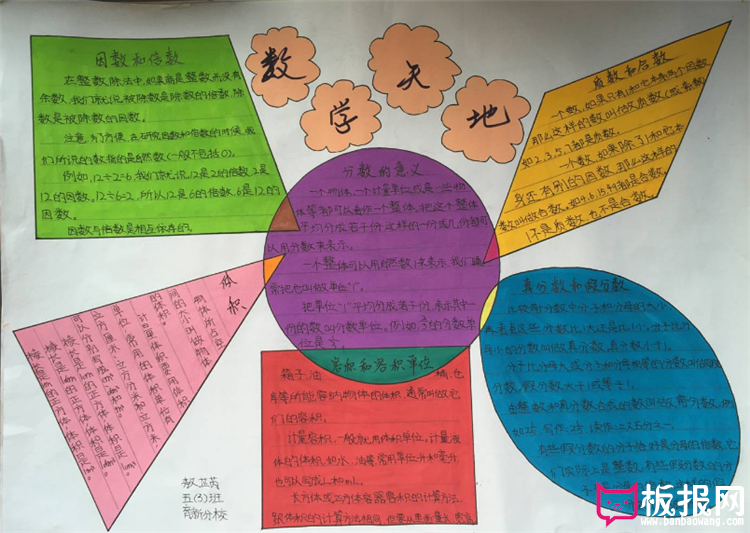 数学天地
因数和倍数
在整数除法中,如果商是整数而没有
余数,我们就说被除数是除数的倍数,除
数是被除数的因数。
注意:为了方便,在研究因数和倍数的时候,我
们所说的数指的是自然数(一般不包括0)。
例如,12÷2=6,我们就说12是2的倍数,2是
12的因数。12÷6=2,所以12是6的倍数,6是12的
因数。
因数与倍数是相互依存的。
质数和合数
一个数,如果只有1和它本身两个因数
那么这样的数叫做质数(或素数)
如2、3、5、7都是质数。
一个数,如果除了1和它本
身还有别的因数,那么这样的
数叫做合数。如4、6、15、49都是合数。
1不是质数,也不是合数。
分数的意义
一个物体、一个计量单位或是一些物
体等都可以看作一个整体。把这个整体
平均分成若干份,这样的一份或几份都可
以用分数来表示。
一个整体可以用自然数1来表示,我们通
常把它叫做单位"1"。
把单位"1"平均分成若干份,表示其中一
份的数叫分数单位。例如
的分数单
位是
体积
物体所占空
间的大小叫做物体
的体积。
计量体积要用体积
单位,常用的体积单位有
立方厘米、立方分米和立方米
可以分别写成cm³、dm³和m³
棱长是1cm的正方体,体积是1cm³
棱长是1dm的正方体,体积是1dm³
棱长是1m的正方体,体积是1m³
容积和容积单位
箱子、油
桶、仓
库等所能容纳物体的体积,通常叫做它
们的容积。
计量容积,一般就用体积单位。计量液
体的体积,如水、油等,常用单位升和毫升,
也可以写成L和ml。
长方体或正方体容器容积的计算方法,
跟体积的计算方法相同,但要从里面量长、宽、高
真分数和假分数
比较每个分数中分子和分母的大小
再看看这些分数比1大还是比1小。分子比分
母小的分数叫做真分数。真分数小于1。
分子比分母大或分子和分母相等的分数叫做假
分数。假分数大于1或等于1。
由整数和真分数合成的数叫做带分数。例
读作:二又五分之一。
有些假分数的分子恰好是分母的倍数,它
们实际上是整数。有些假分数的分
五(3)班
育新分校
板报网
www.banbaowang.com